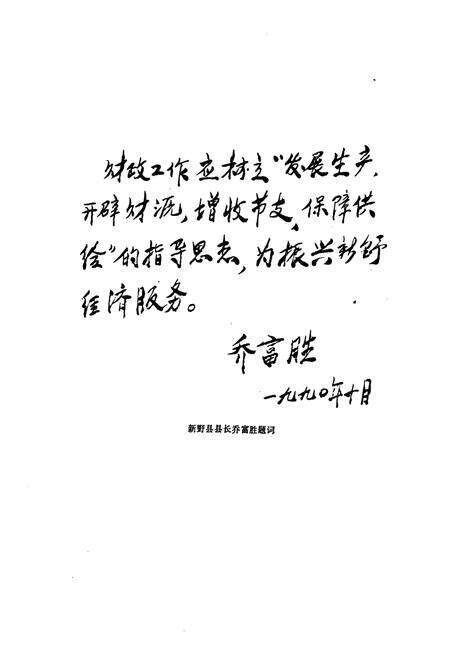 财政工作应树立“发展生产，
开辟财源，增收节支，保障供
给”的指导思想，为振兴新野
经济服务。
乔富胜
一九九〇年十月
新野县县长乔富胜题词